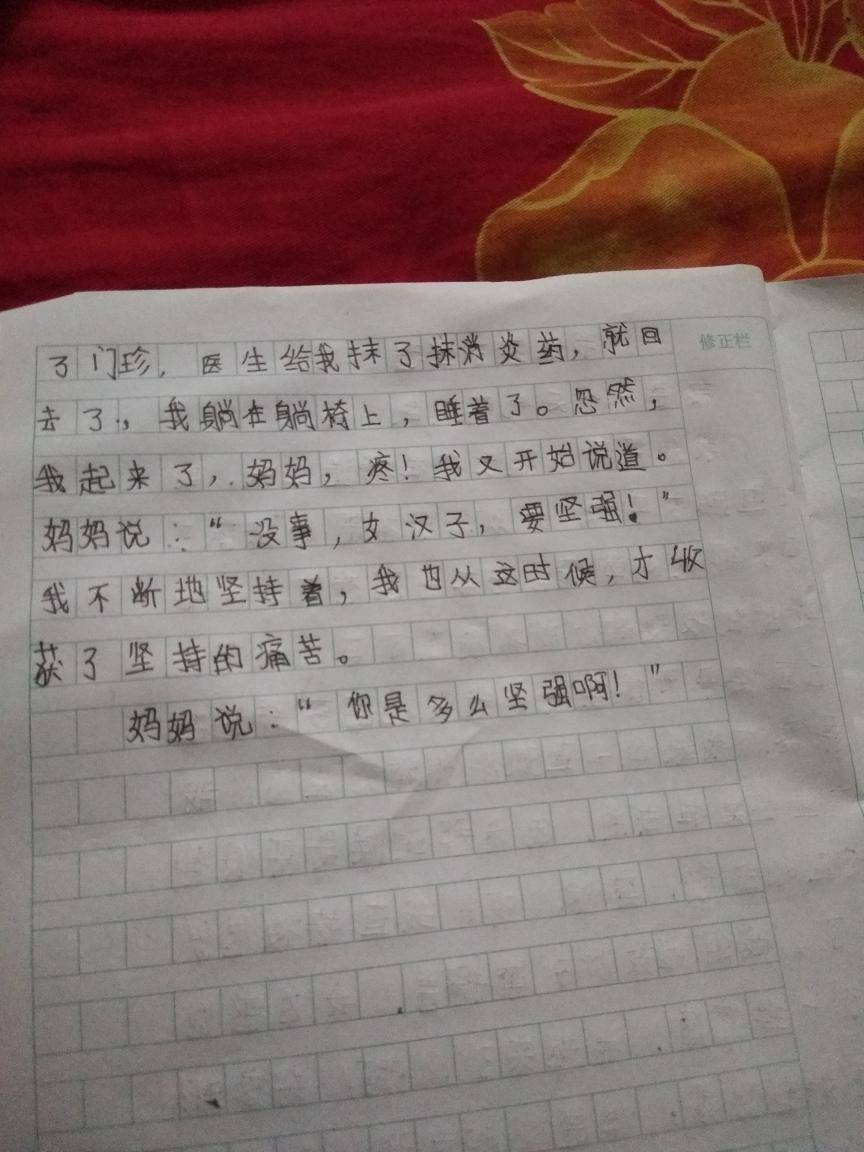 了门珍，医生给我抹了抹消炎药，就回
修正栏
去了，我躺在躺椅上，睡着了。忽然，
我起来了，妈妈，疼！我又开始说道。
妈妈说：“没事，女汉子，要坚强！”
我不断地坚持着，我也从这时候，才收
获了坚持的痛苦。
妈妈说：“你是多么坚强啊！”